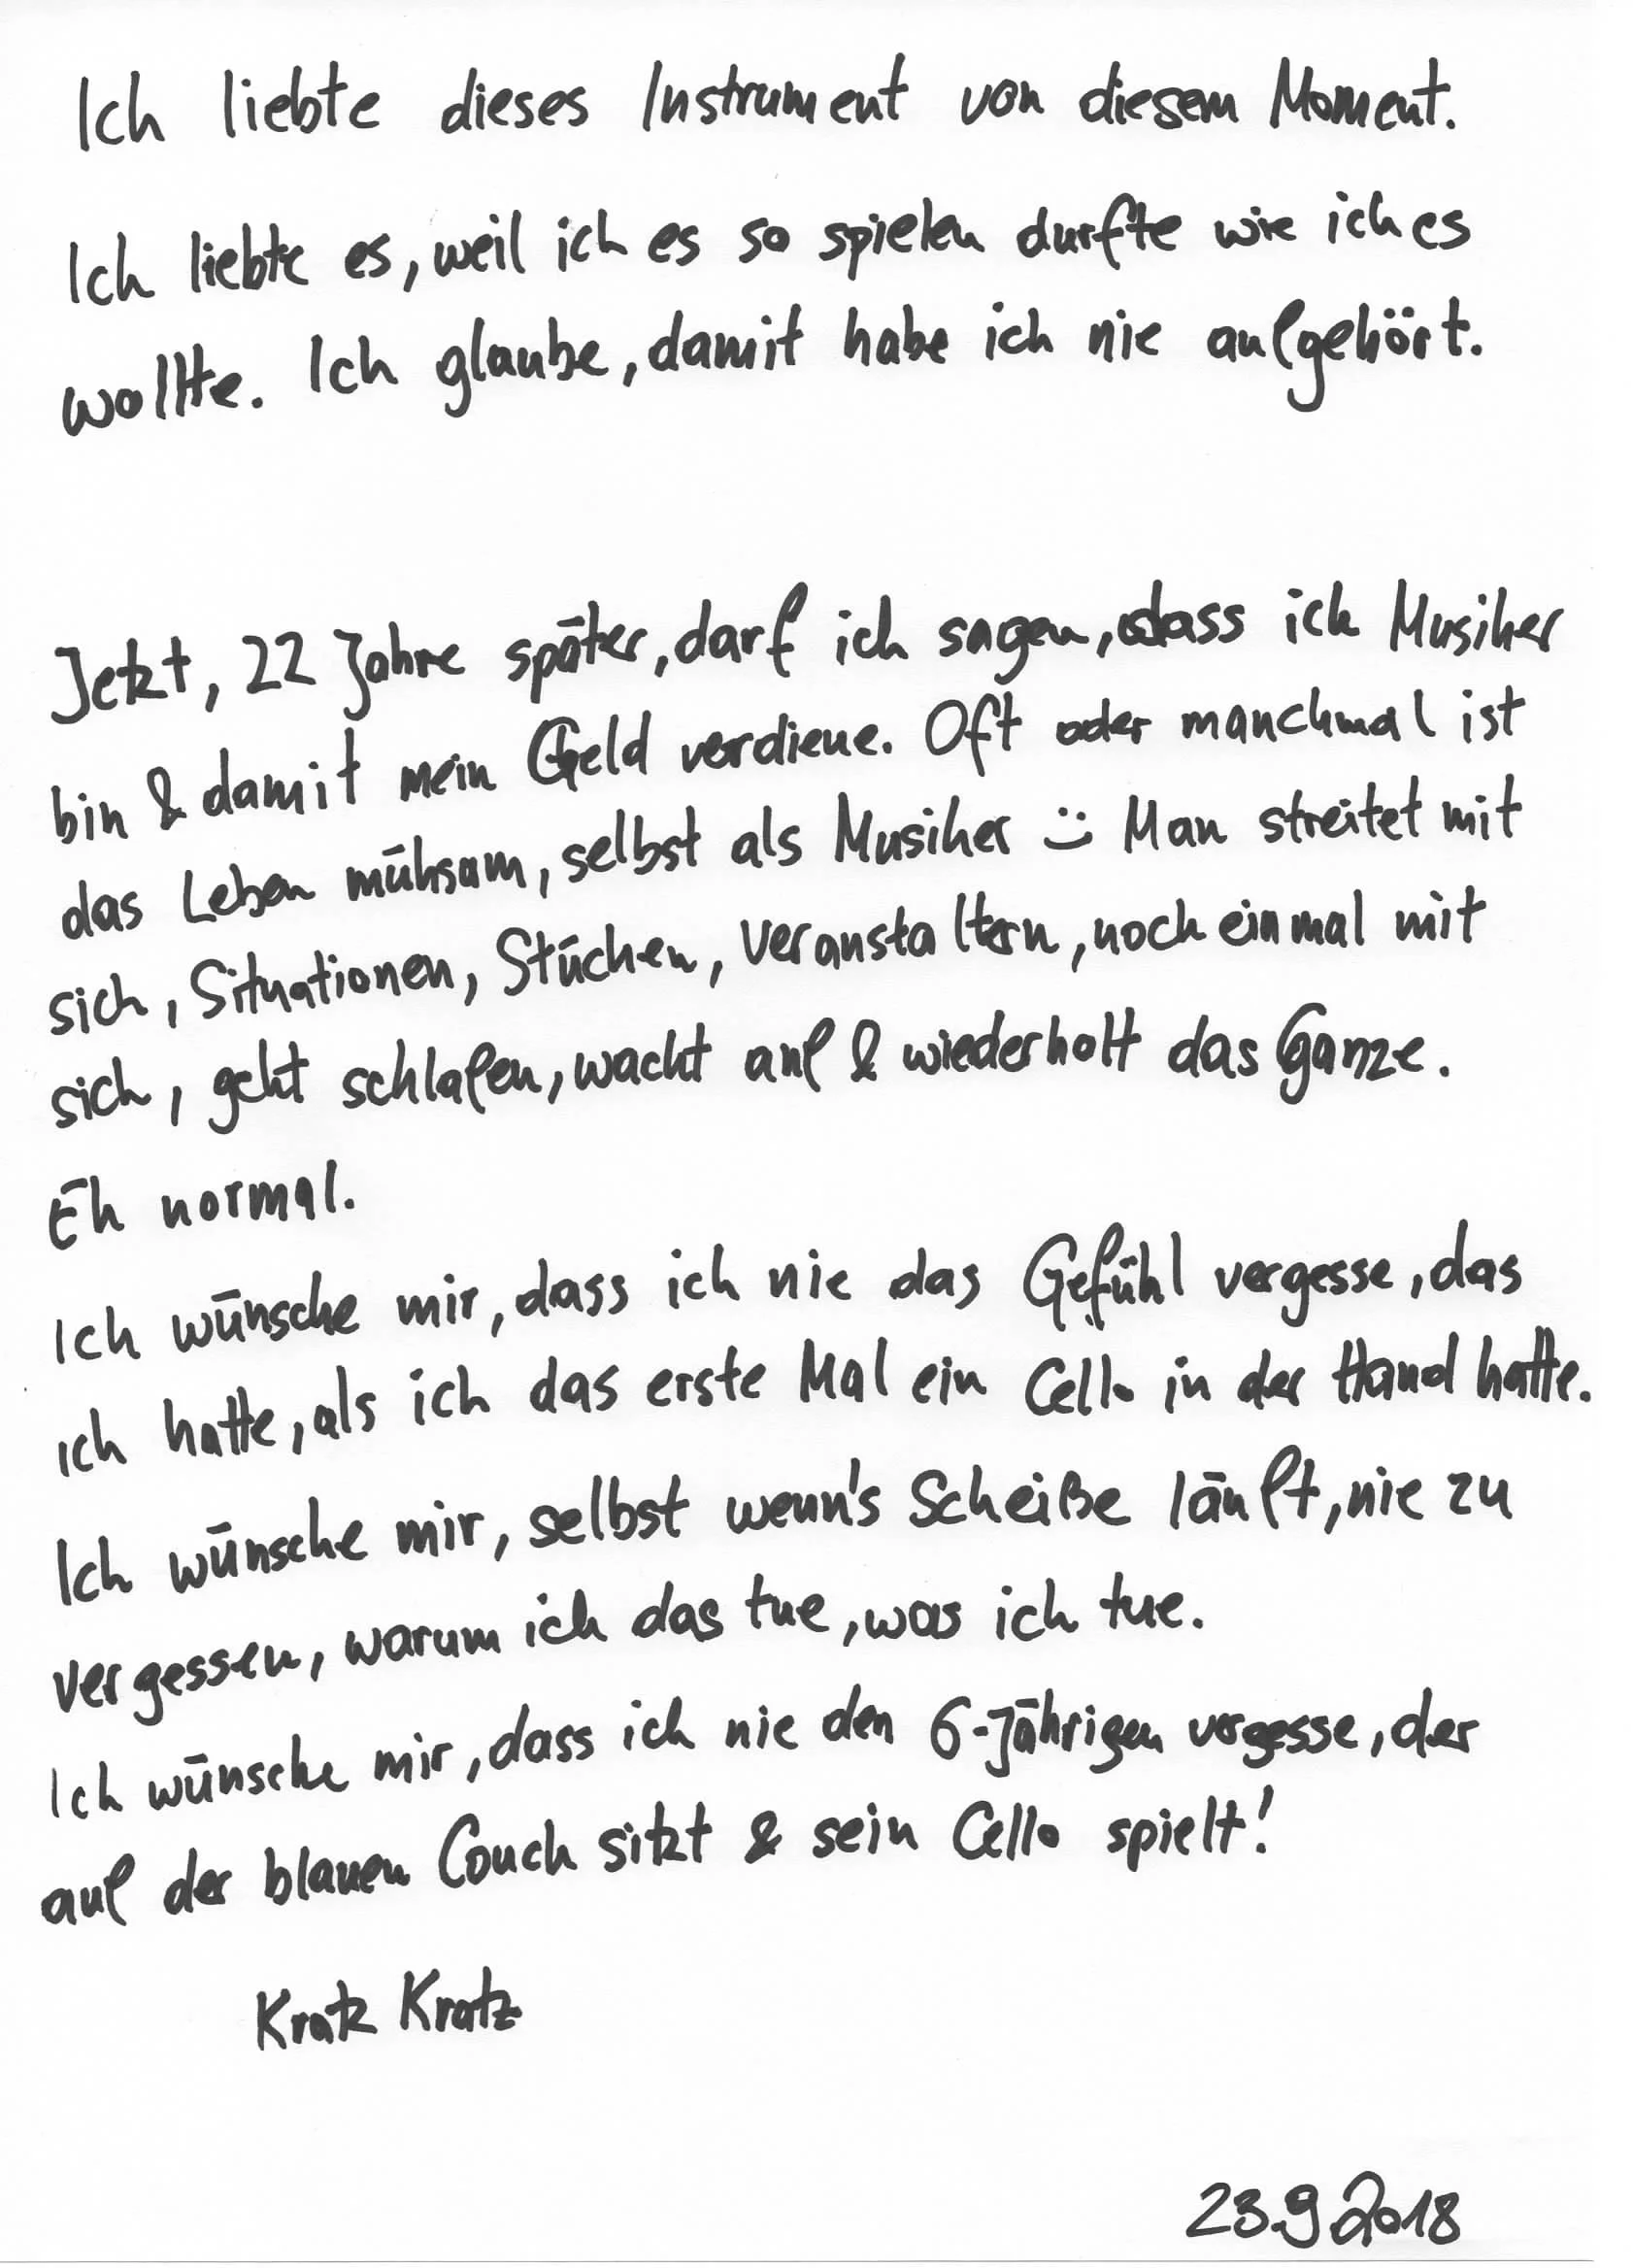 Ich liebte dieses Instrument von diesem Moment.
Ich liebte es, weil ich es so spielen durfte wie ich es
wollte. Ich glaube, damit habe ich nie aufgehört.
Jetzt, 22 Jahre später, darf ich sagen, dass ich Musiker
bin & damit mein Geld verdiene. Oft oder manchmal ist
das Leben mühsam, selbst als Musiker :) Man streitet mit
sich, Situationen, Stücken, Veranstaltern, noch einmal mit
sich, geht schlafen, wacht auf & wiederholt das Ganze.
Eh normal.
Ich wünsche mir, dass ich nie das Gefühl vergesse, das
ich hatte, als ich das erste Mal ein Cello in der Hand hatte.
Ich wünsche mir, selbst wenn's Scheiße läuft, nie zu
vergessen, warum ich das tue, was ich tue.
Ich wünsche mir, dass ich nie den 6-Jährigen vergesse, der
auf der blauen Couch sitzt & sein Cello spielt!
Kratz Kratz
23.9.2018